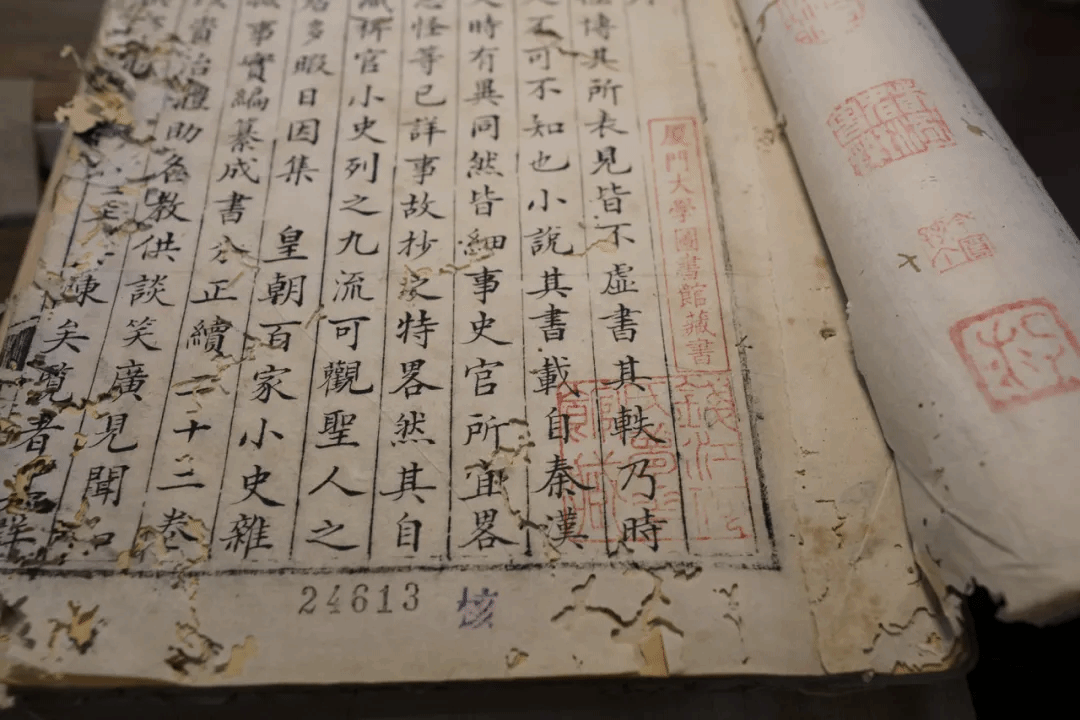 厦門大學圖書館藏書
博其所表見皆不虛書其軼乃時
不可不知也小說其書載自秦漢
時有異同然皆細事史官所宜畧
怪等已詳事故抄之特畧然其自
稗官小史列之九流可觀聖人之
多暇日因集 皇朝百家小史雜
事實編纂成書分正續二十三卷
資治體助名教供談笑廣見聞
陳矣覽者
24613
核